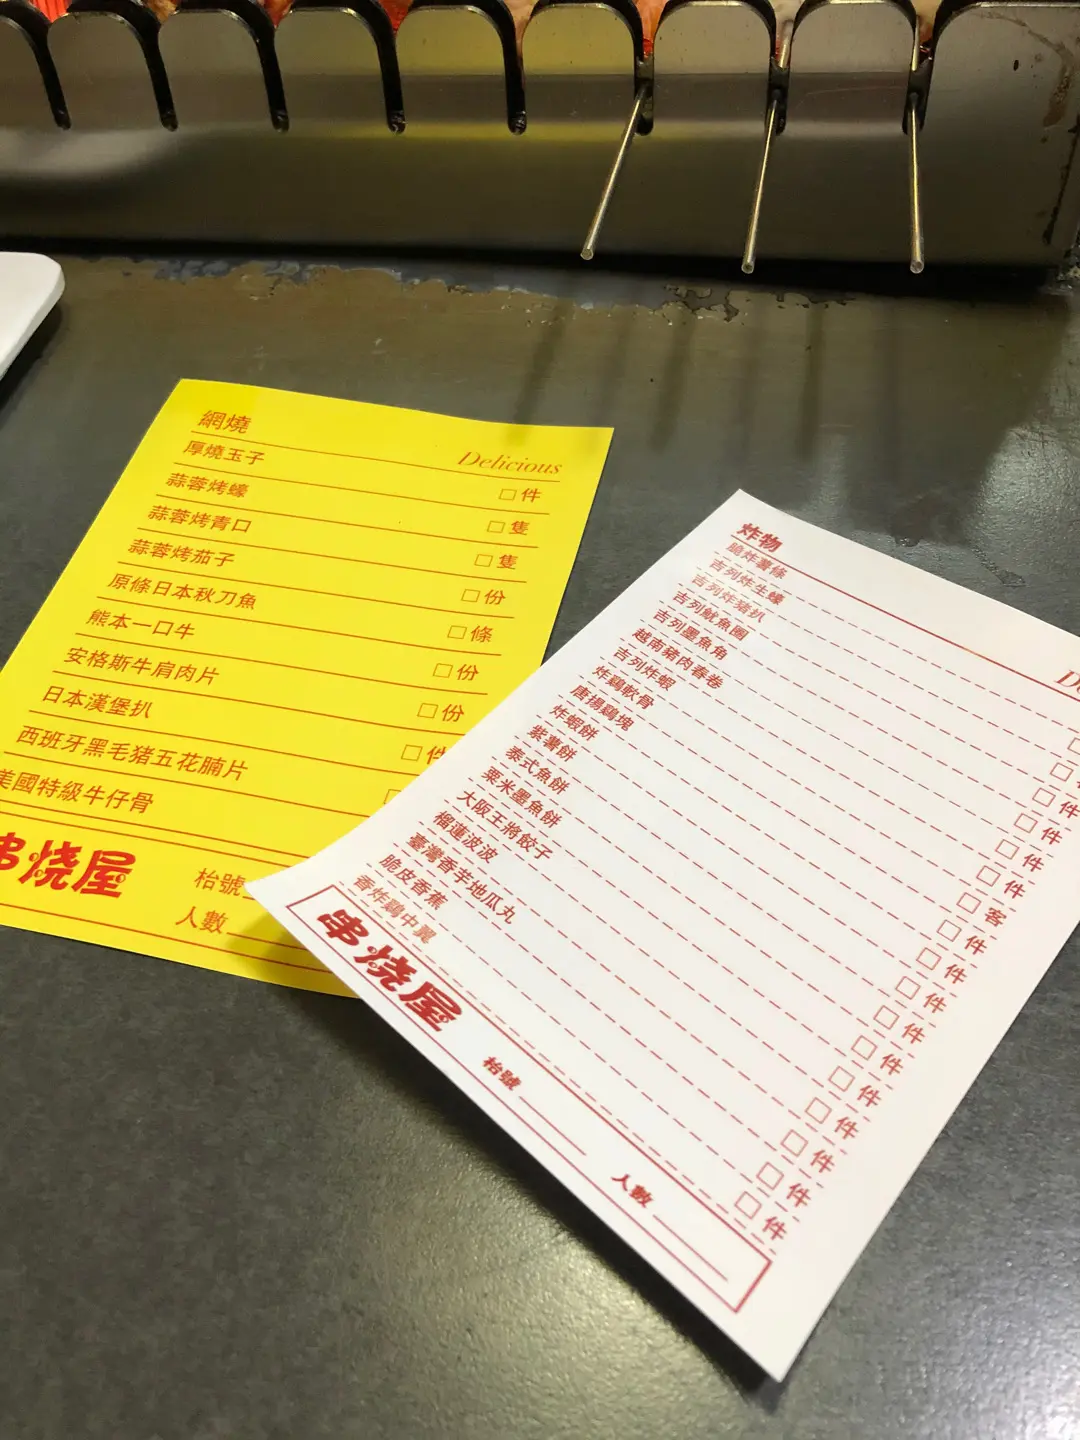 網燒
Delicious
厚燒玉子 □件
蒜蓉烤蠔 □隻
蒜蓉烤青口 □隻
蒜蓉烤茄子 □份
原條日本秋刀魚 □條
熊本一口牛 □份
安格斯牛肩肉片 □份
日本漢堡扒 □件
西班牙黑毛猪五花腩片
美國特級牛仔骨
串烧屋
枱號
人數
炸物
脆炸薯條
吉列炸生蠔
吉列炸猪扒 □件
吉列魷魚圈 □件
吉列墨魚角 □件
越南豬肉春卷 □件
吉列炸蝦 □件
炸鷄軟骨 □客
唐揚鷄塊 □件
炸蝦餅 □件
紫薯餅 □件
泰式魚餅 □件
粟米墨魚餅 □件
大阪王將餃子 □件
榴蓮波波 □件
臺灣香芋地瓜丸 □件
脆皮香蕉 □件
香炸鷄中翼 □件
串烧屋
枱號
人數